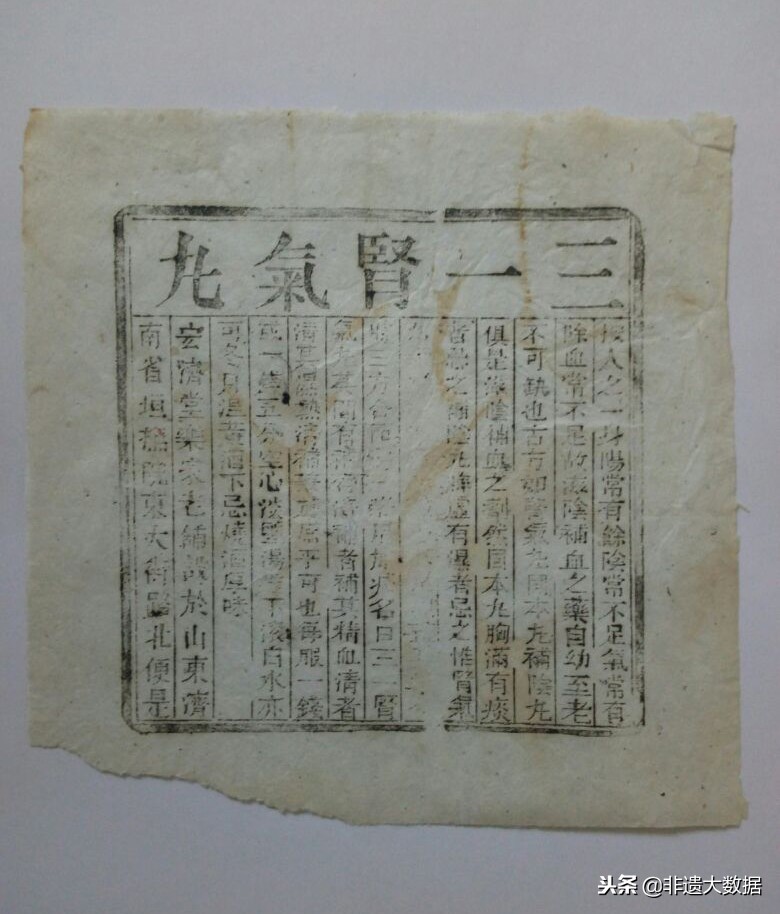 三一腎氣丸
按人之一身陽常有餘陰常不足氣常有
餘血常不足故滋陰補血之藥自幼至老
不可缺也古方如腎氣丸固本丸補陰丸
俱是滋陰補血之劑然固本丸胸滿有痰
者忌之補陰丸脾虛有濕者忌之惟腎氣
丸
三方合而一常用於病名曰三一腎
氣丸其間有補者補其精血清者
清其濕熱清補庶乎可也每服一錢
或一錢五分空心淡鹽湯送下滾白水亦
可冬月溫黃酒下忌燒酒厚味
宏濟堂樂家老鋪設於山東濟
南省垣撫院東大街路北便是
头条 @非遗大数据